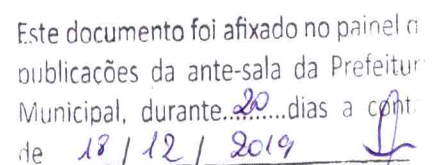 Este documento foi afixado no painel d
publicações da ante-sala da Prefeitur
Municipal, durante..20...dias a cont
de 18 / 12 / 2019